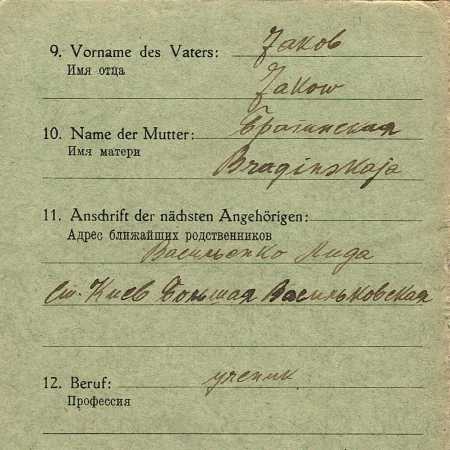 9. Vorname des Vaters: Яков
Имя отца
Jakow
10. Name der Mutter: Брагинская
Имя матери
Braginskaja
11. Anschrift der nächsten Angehörigen:
Адрес ближайших родственников
Васильенко Лида
ст. Киев Большая Васильковская
12. Beruf: ученик
Профессия